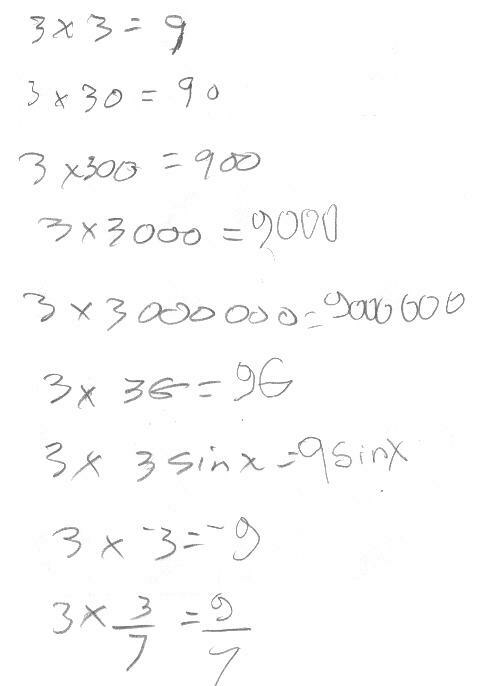 3 × 3 = 9
3 × 30 = 90
3 × 300 = 900
3 × 3000 = 9000
3 × 3000000 = 9000000
3 × 3G = 9G
3 × 3 sin x = 9 sin x
3 × ⁻3 = ⁻9
3 × 3/7 = 9/7